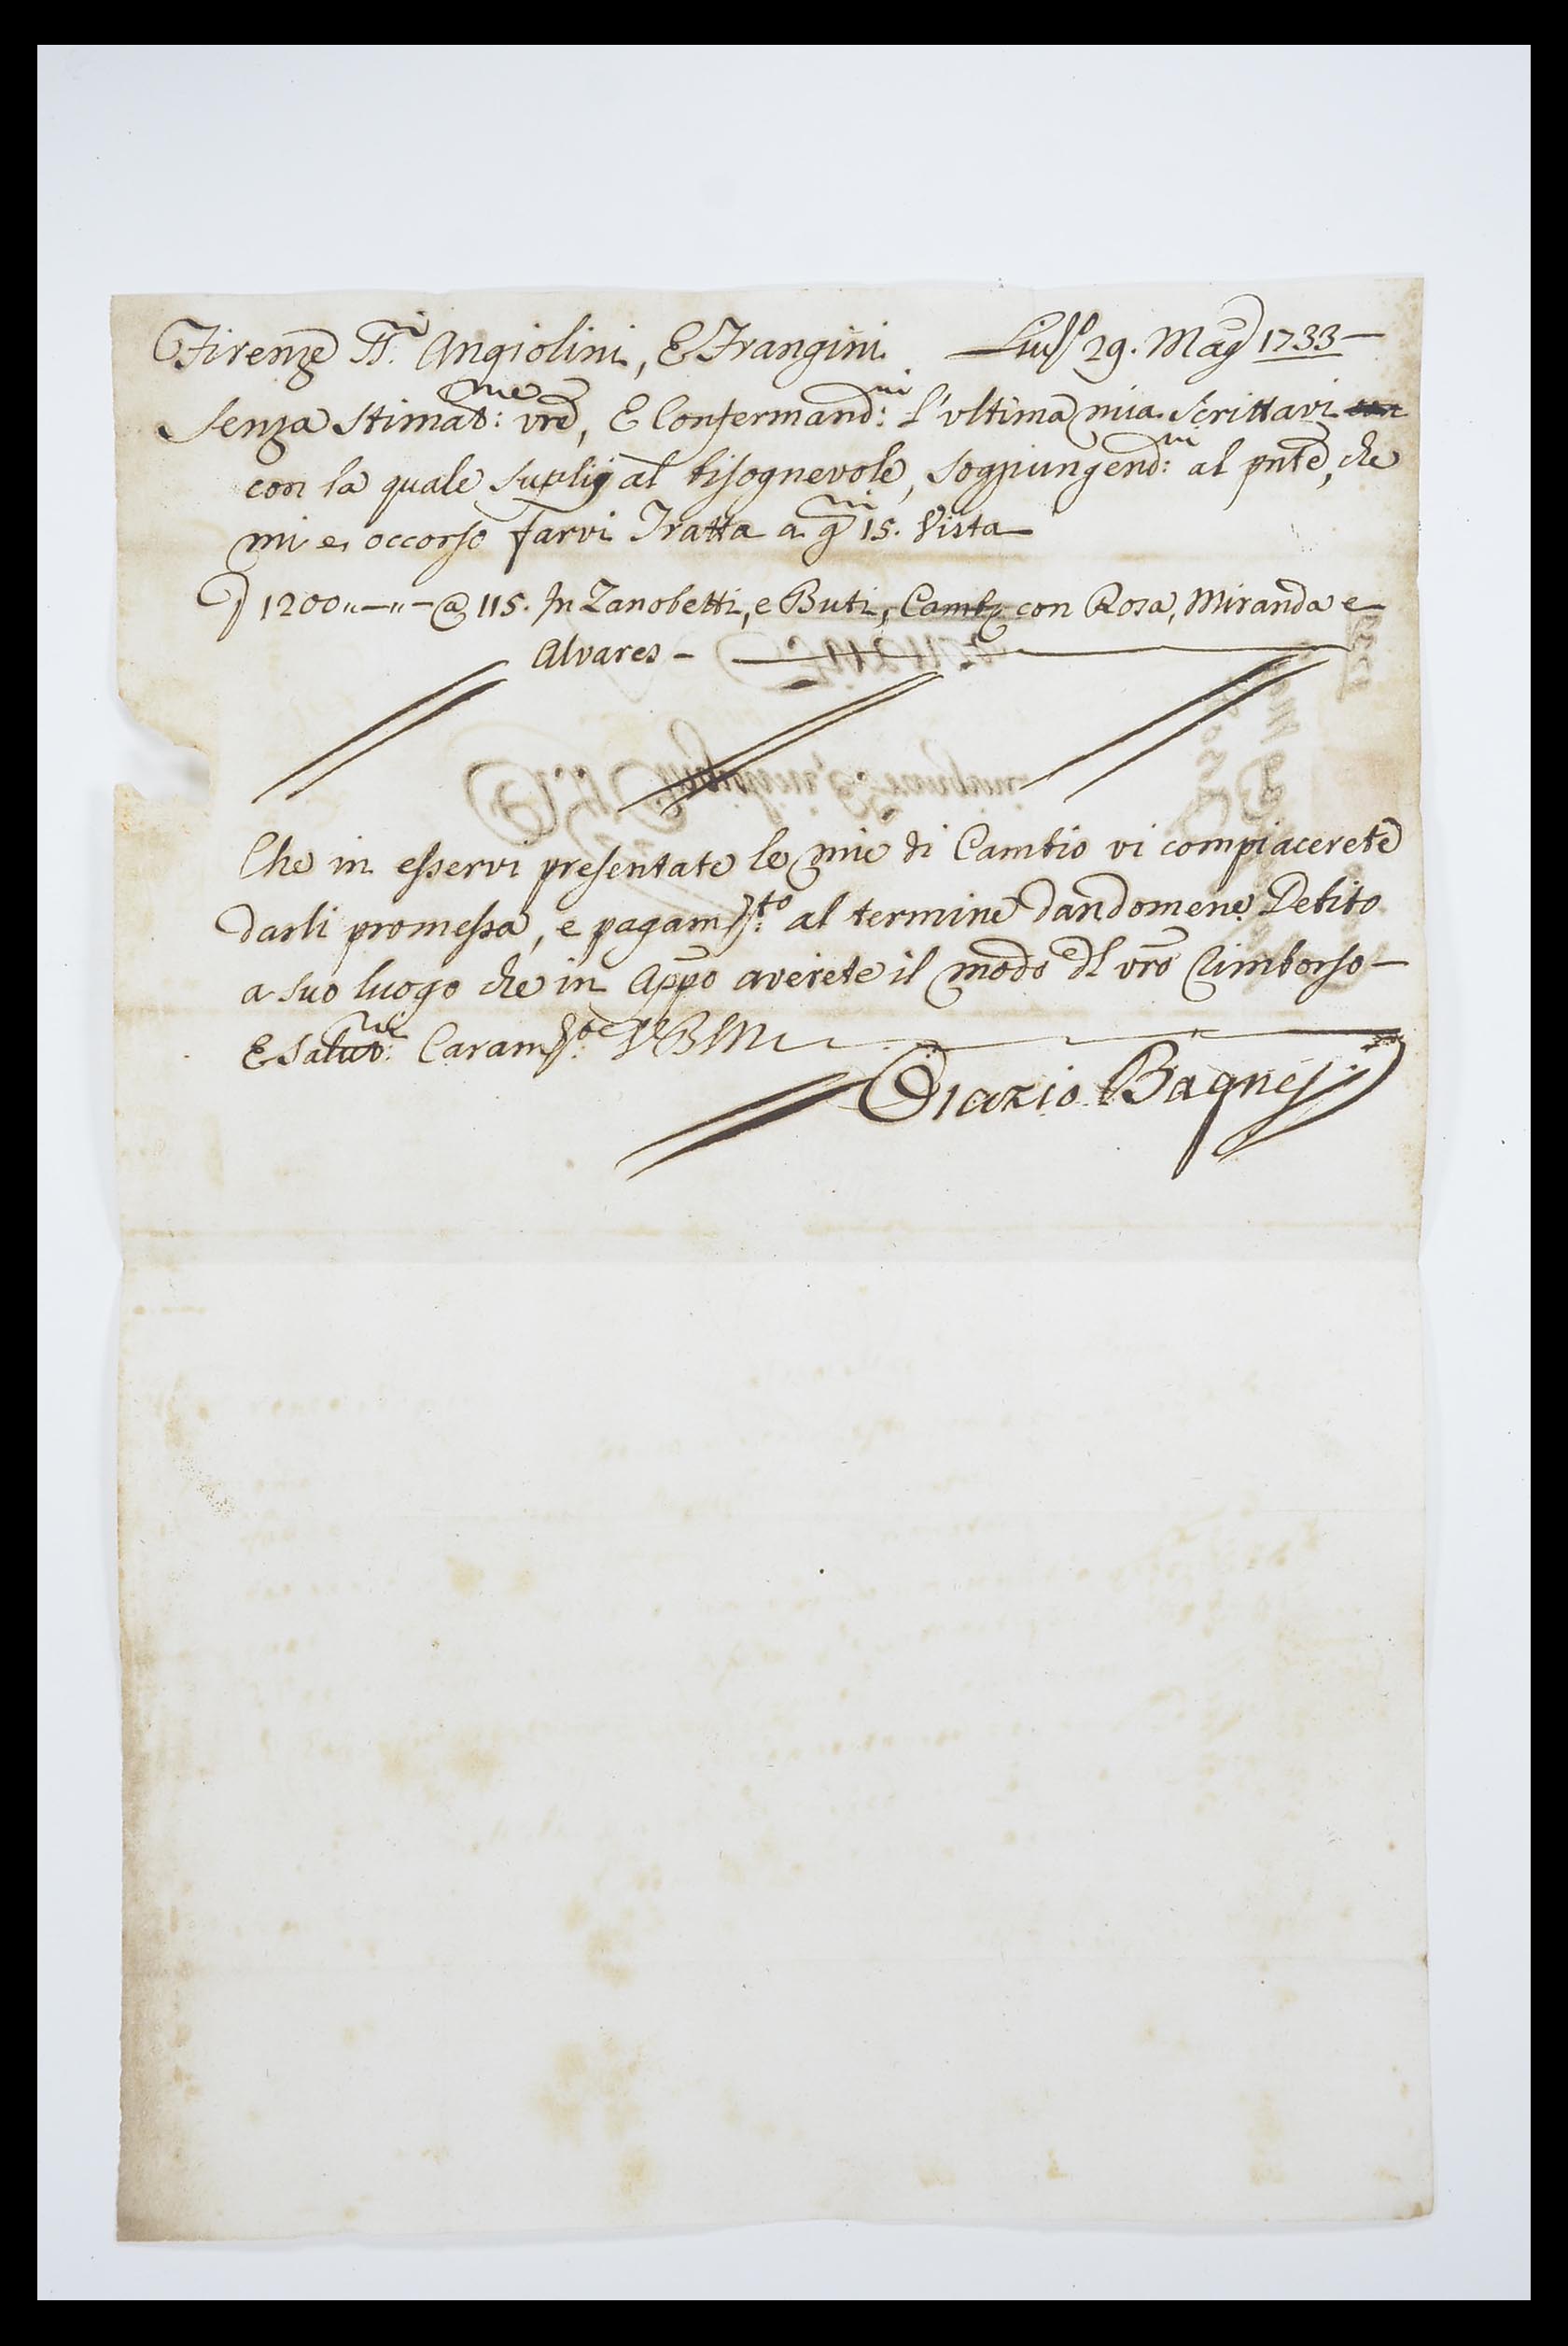 Firenze SS.ri Angiolini, E Frangini Liv.o 29. Mag 1733 —
Senza stimat:me vre, E Confermand:mi l'ultima mia scrittavi
con la quale suplij al bisognevole, soggiungend:vi al pnte, che
mi e occorso farvi Tratta a g.ni 15. Vista —
P 1200„—„— @ 115. In Zanobetti, e Buti, Camb.ta con Rosa, Miranda e
Alvares —
Che in esservi presentate le mie di Cambio vi compiacerete
darli promessa, e pagam.to al termine dandomene Debito
a suo luogo che in Appo averete il modo del vro Rimborso —
E salut:ne Caram.te VBM
Orazio Bagnesi